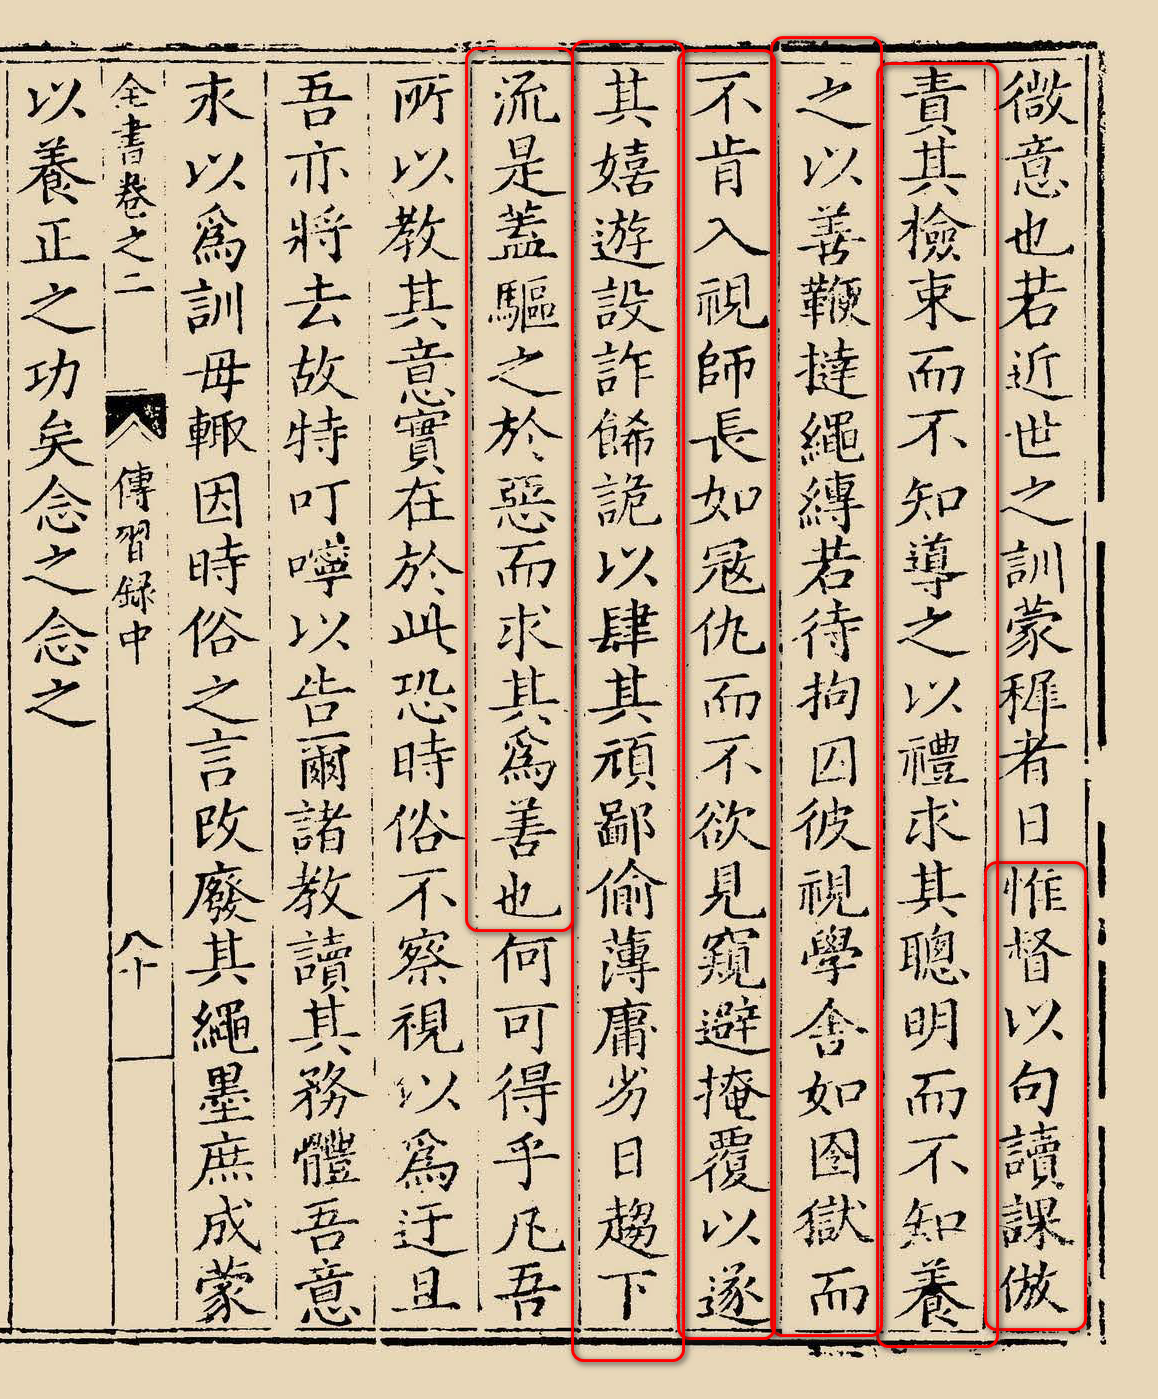 微意也若近世之訓蒙穉者日惟督以句讀課倣
責其檢束而不知導之以禮求其聰明而不知養
之以善鞭撻繩縛若待拘囚彼視學舍如囹獄而
不肯入視師長如冦仇而不欲見窺避掩覆以遂
其嬉遊設詐餙詭以肆其頑鄙偷薄庸劣日趨下
流是蓋驅之於惡而求其爲善也何可得乎凡吾
所以教其意實在於此恐時俗不察視以爲迂且
吾亦將去故特叮嚀以告爾諸教讀其務體吾意
求以爲訓毋輙因時俗之言改廢其繩墨庶成蒙
全書卷之二
傳習録中
八十
以養正之功矣念之念之